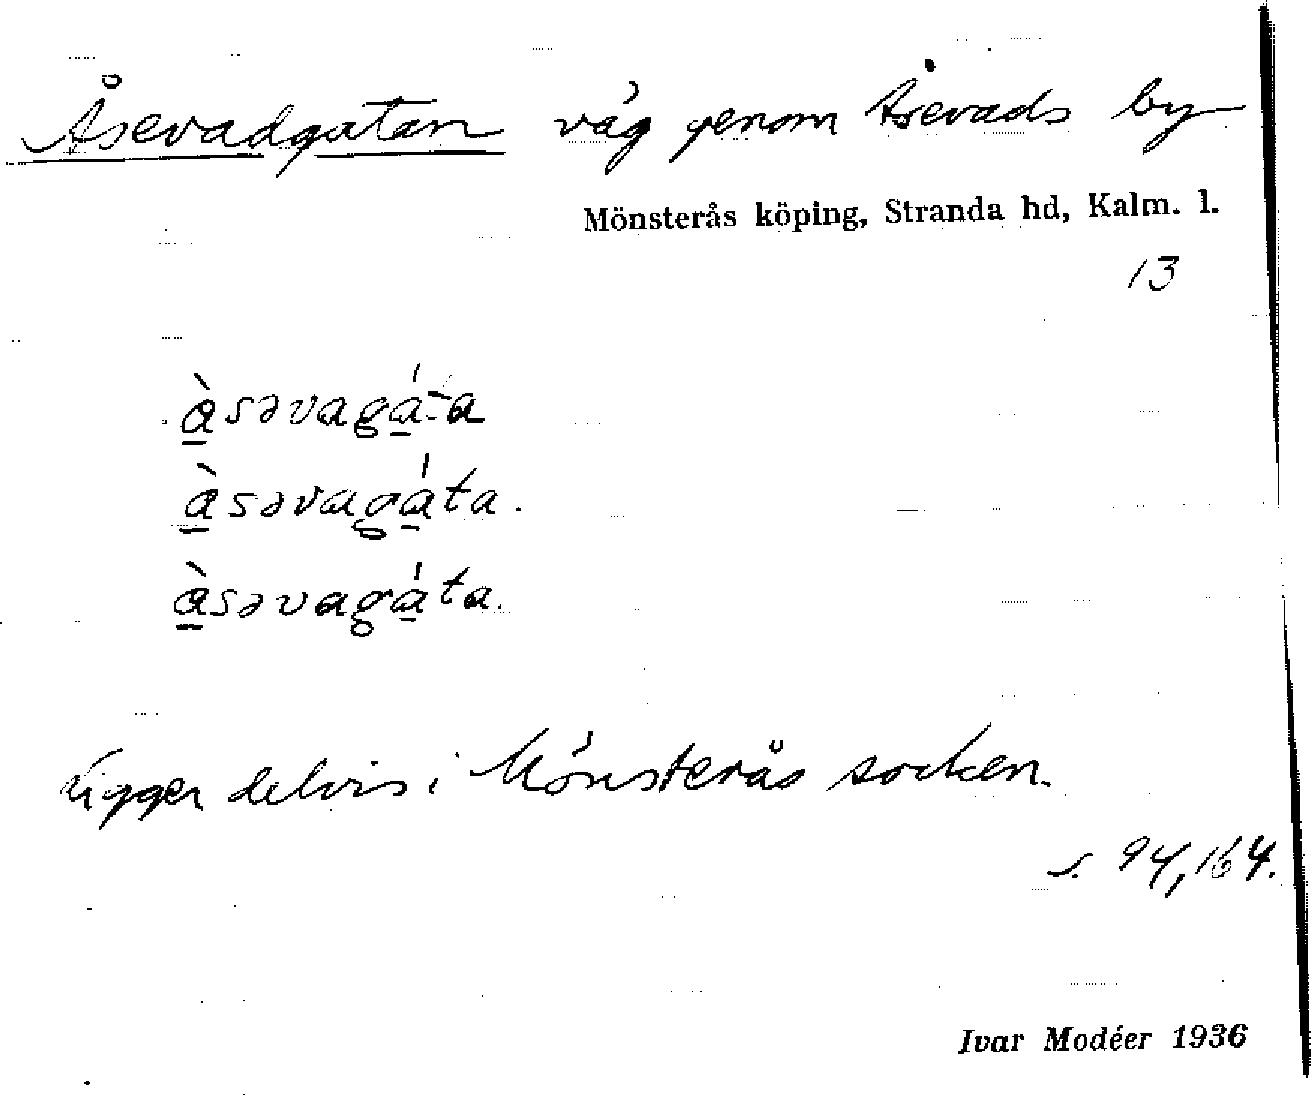 Åsevadgatan väg genom Åsevads by
Mönsterås köping, Stranda hd, Kalm. l.
13
à̲səvagá̲ta
à̲səvagá̲ta.
à̲səvagá̲ta.
Ligger delvis i Mönsterås socken.
s. 94, 164.
Ivar Modéer 1936